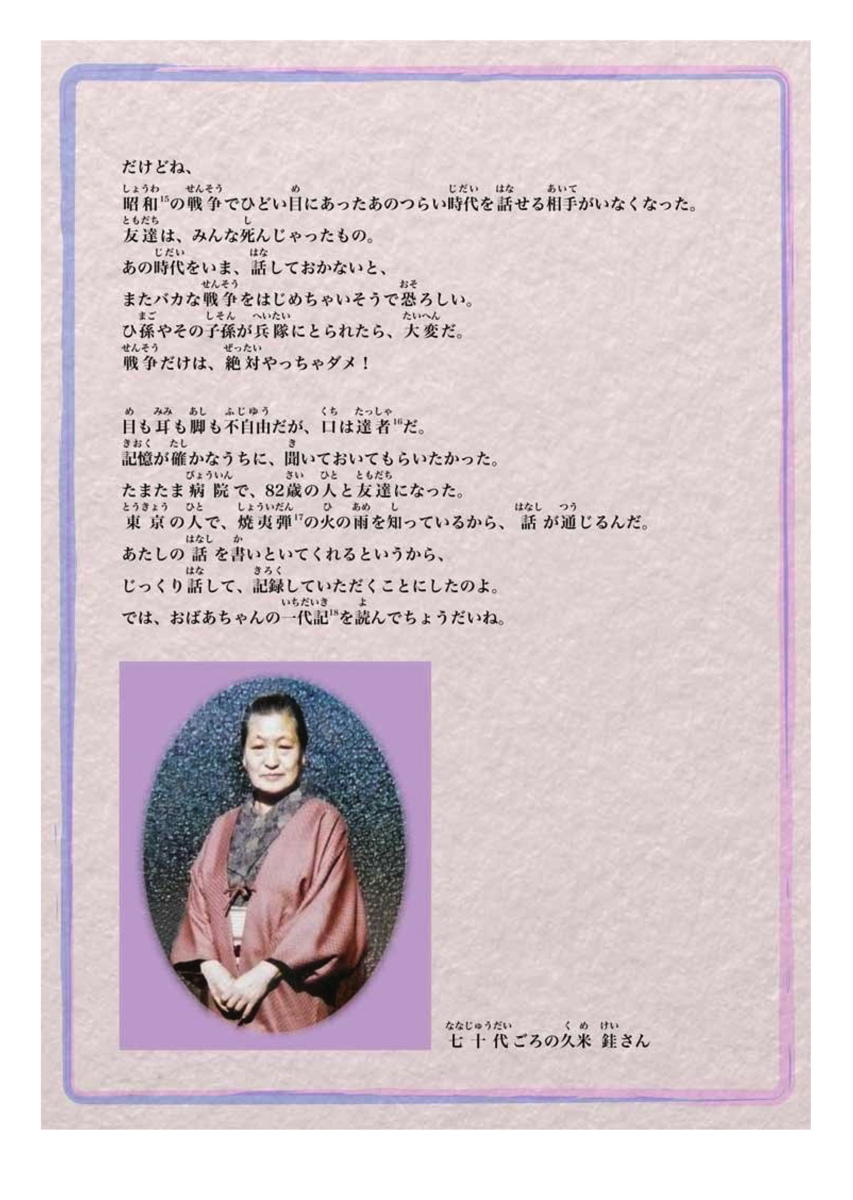 だけどね、
昭和15の戦争でひどい目にあったあのつらい時代を話せる相手がいなくなった。
友達は、みんな死んじゃったもの。
あの時代をいま、話しておかないと、
またバカな戦争をはじめちゃいそうで恐ろしい。
ひ孫やその子孫が兵隊にとられたら、大変だ。
戦争だけは、絶対やっちゃダメ！
目も耳も脚も不自由だが、口は達者16だ。
記憶が確かなうちに、聞いておいてもらいたかった。
たまたま病院で、82歳の人と友達になった。
東京の人で、焼夷弾17の火の雨を知っているから、話が通じるんだ。
あたしの話を書いといてくれるというから、
じっくり話して、記録していただくことにしたのよ。
では、おばあちゃんの一代記18を読んでちょうだいね。
七十代ごろの久米 銈さん